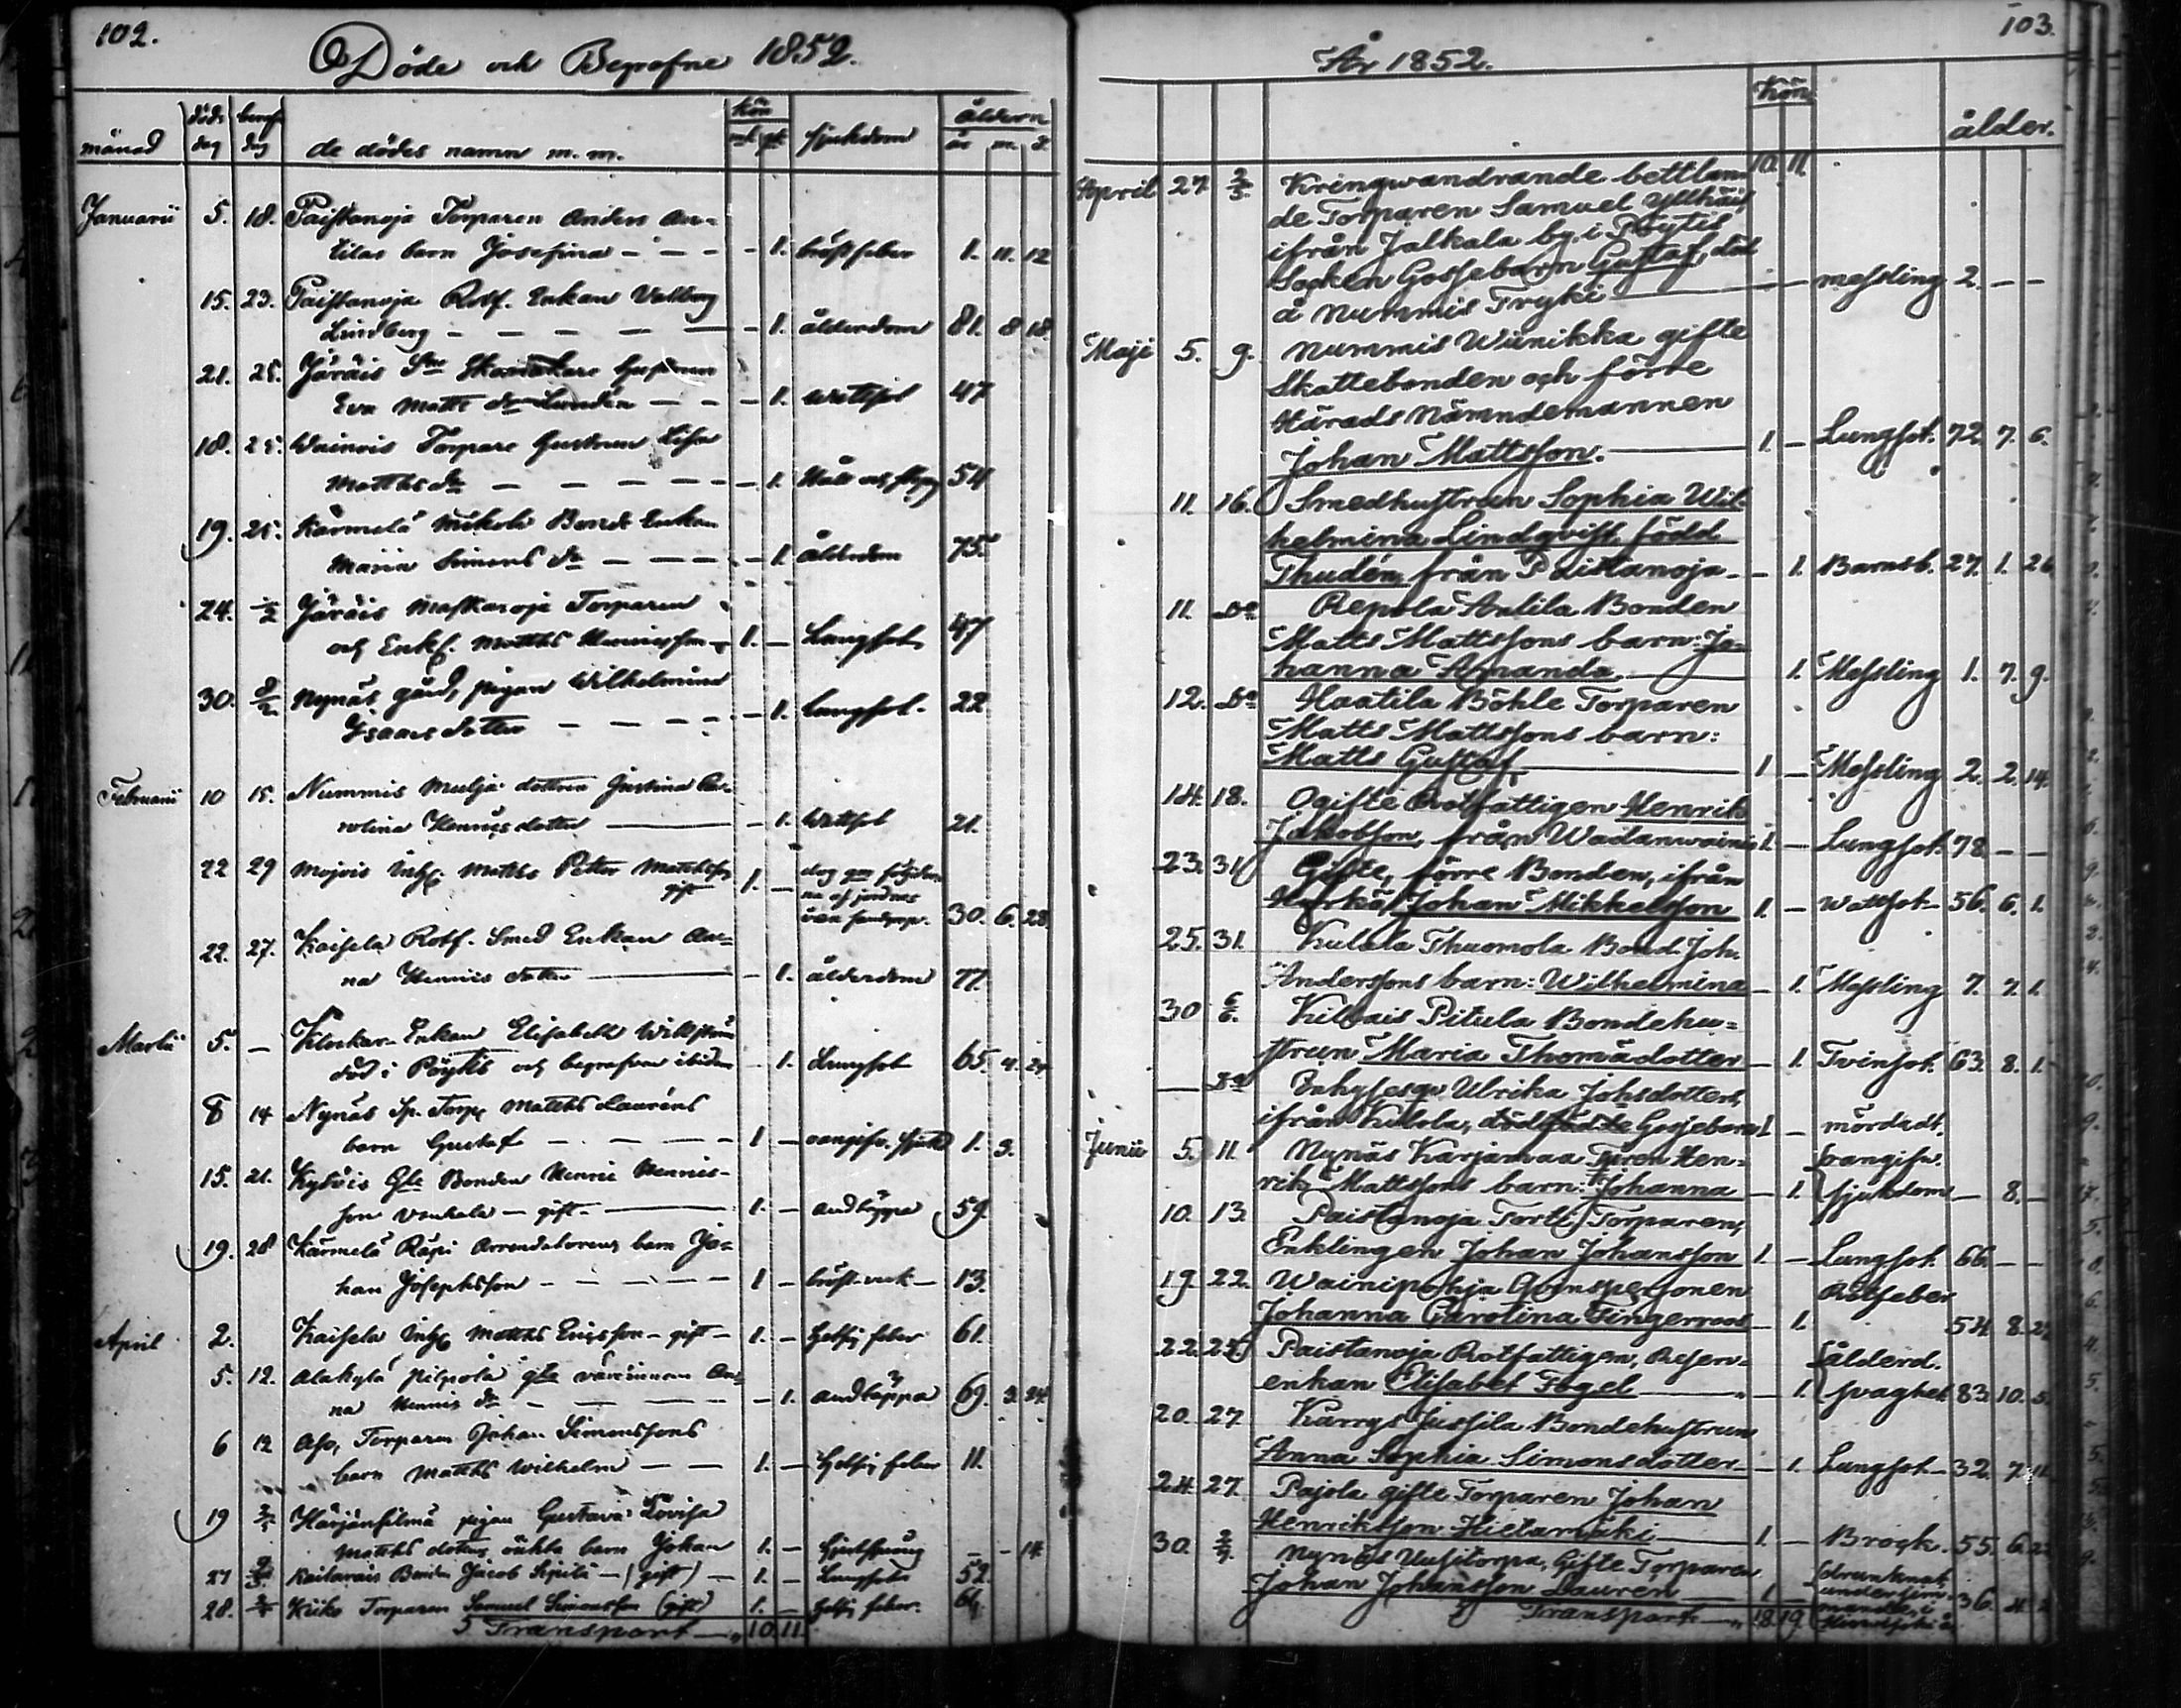 102.
Döde och Begrafne 1852.
månad döds dag begr dag de dödes namn m. m. kön mk qk sjukdom åldern år m. d.
Januarii 5. 18. Paistanoja Torparen Anders An-
tilas barn Josefina - - - - 1. bröstfeber 1. 11. 12
15. 23. Paistanoja Rotf. Enkan Valborg
Lindberg - - - - - 1. ålderdom 81. 8 18.
21. 25. Järäis Skomakare hustrun
Eva Matts dr Lundén - - - 1. wattsot 47
18. 25. Wainois Torpare hustrun Lisa
Matths dr - - - - - 1. Håll och styng 54
19. 25. Kärmelä Mikola Bonde Enkan
Maria Simons dr - - - - 1. ålderdom 75.
24. 1/2 Järäis Maskanoja Torparen
och Enkl. Matths Henricsson 1. - Lungsot 47
30. 8/2. Nynäs gård, pigan Wilhelmina
Isaacs dotter - - - - 1. lungsot. 22
Februarii 10 15. Nummis Mulja dottren Justina Ca-
rolina Henrics dotter - 1. Wattsot 21.
22 29 Mojois Inh. Matths Petter Matthsson
gift 1. - 30. 6. 28.
22. 27. Kaisela Rotf. Smed Enkan An-
na Henrics dotter - 1. ålderdom 77.
Martii 5. - Klockar Enkan Elisabeth Wikström
död i Pöytis och begrafven ibidem - 1. Lungsot 65. 4. 24
8 14 Nynäs Sp. Torp. Matths Lauréns
barn Gustaf - - - - 1 - oangifv. sjukd. 1. 3.
15. 21. Kylöis Gle Bonden Henric Henrics-
son Vanhala - gift - 1. - andtäppa 59.
19. 28 Kärmelä Räpi Arrendatorens barn Jo-
han Josephsson - - - - 1 - bröstverk - 13.
April 2. Kaisela Inh. Matths Ericsson - gift - 1. - hetsig feber 61.
5. 12. Alakylä Pilpola gla värdinnan An-
na Henrics dr - - - - 1. andtäppa 69. 3. 24.
6 12 Aso, Torparen Johan Simonssons
barn Matths Wilhelm - - 1. - hetsig feber 11.
19 2/5 Härjänsilmä pigan Gustava Lovisa
Matths dotters oäkta barn Johan 1. - - - 14.
27 2/5 Kaitarais Bonden Jacob Sipilä - (gift) - 1. - Lungsot 52.
28. 2/5 Kriko Torparen Samuel Simonsson (gift) 1. - hetsig feber. 66.
Transport - " 10. 11.
103.
År 1852.
Kön. ålder.
10. 11.
April 27. 2/5. Kringvandrande bettlan-
de Torparen Samuel Yllhäis
ifrån Jalkala by i Pöytis
Socken Gossebarn Gustaf, död
å Nummis Fryki - - messling 2. - -
Maji 5. 9. Nummis Wiinikka gifte
Skattebonden och förre
Härads Nämndemannen
Johan Mattsson. 1. - Lungsot. 72. 7. 6.
11. 16. Smedhustrun Sophia Wil-
helmina Lindqvist, född
Thudén, från Paistanoja - - 1. Barnsb. 27. 1. 26
11. Do Repola Antila Bonden
Matts Mattssons barn: Jo-
hanna Amanda. 1. Messling 1. 7. 9.
12. Do Haatila Böhle Torparen
Matts Mattssons barn:
Matts Gustaf, 1 - Messling 2. 2. 14.
14. 18. Ogifte Rotfattigen Henrik
Jakobsson, från Wadanwainio 1. - Lungsot. 78. - -
23. 31. Gifte, förre Bonden, ifrån
Härkä, Johan Mikkelsson 1. - Wattsot - 56. 6. 1.
25. 31. Kulela Thuomola Bond. Joh.
Anderssons barn: Wilhelmina - 1. Messling 7. 7. 1.
30 6/6. Kilvais Pitula Bondehu-
strun Maria Thomædotter - 1. Tvinsot. 63. 8. 1.
- Do Inhysesqv. Ulrika Johsdotters,
ifrån Kulola, dödfödde Gossebarn 1. - mördadt.
Junii 5. 11. Nynäs Karjamaa Tp:ren Hen-
rik Mattssons barn: Johanna - 1. oangifv. sjukdom - 8. -
10. 13. Paistanoja Torti Torparen,
Enklingen Johan Johansson 1. - Lungsot. 66. - -
19. 22. Wainionpohja Qvinspersonen
Johanna Carolina Fingerroos - 1. Rötfeber 54. 8. 27
22. 25. Paistanoja Rotfattigen, Reserv-
enkan Elisabet Fogel " 1. ålderd. svaghet 83. 10. 5.
20. 27. Karrys Jussila Bondehustrun
Anna Sophia Simonsdotter - 1. Lungsot - 32. 7. 11
24. 27. Pajola gifte Torparen Johan
Henriksson Hietamäki 1. - Bråck. 55. 6. 22
30. 2/7. Nynäs Uusitorpa, Gifte Torparen
Johan Johansson Lauren 1 - drunknat under 36. 4. 2
Transport - " 18. 19.